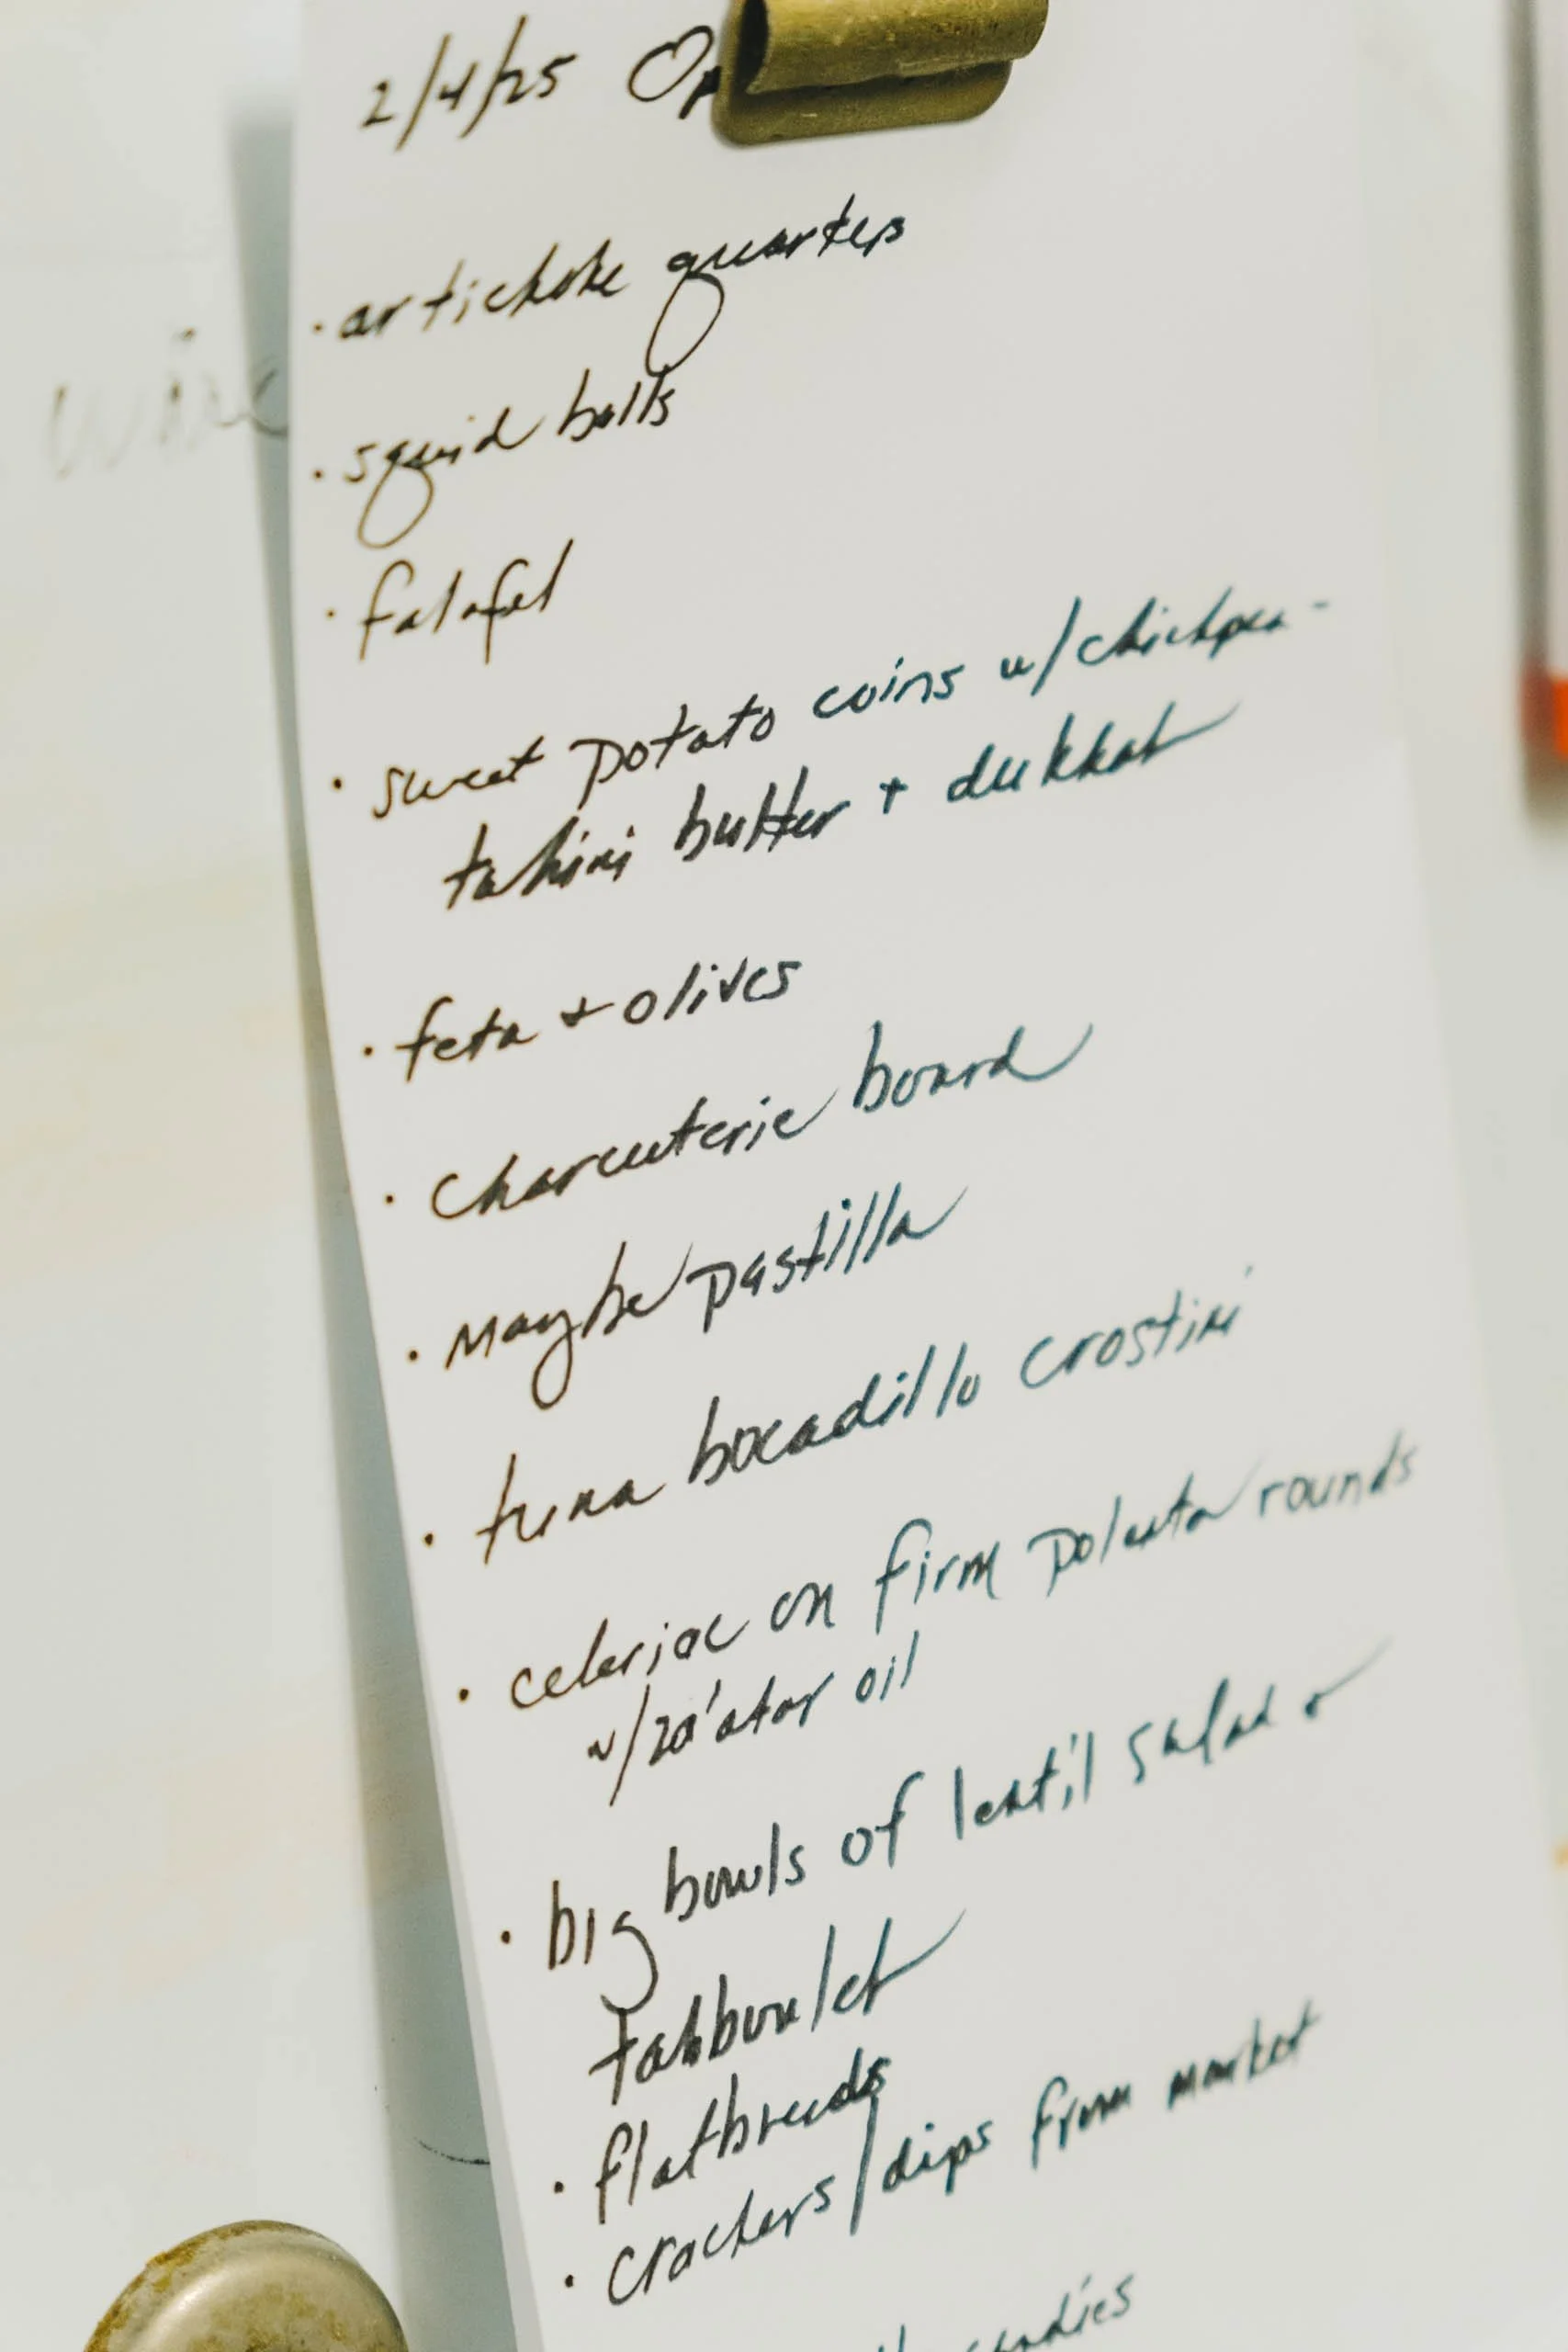 2/4/25 Op
· artichoke quarters
· squid balls
· falafel
· sweet potato coins w/chickpea-
tahini butter + dukkah
· feta + olives
· charcuterie board
· Maybe pastilla
· tuna bocadillo crostini
· celeriac on firm polenta rounds
w/za'atar oil
· big bowls of lentil salad or
tabbouleh
· flatbreads
· crackers/dips from market
candies